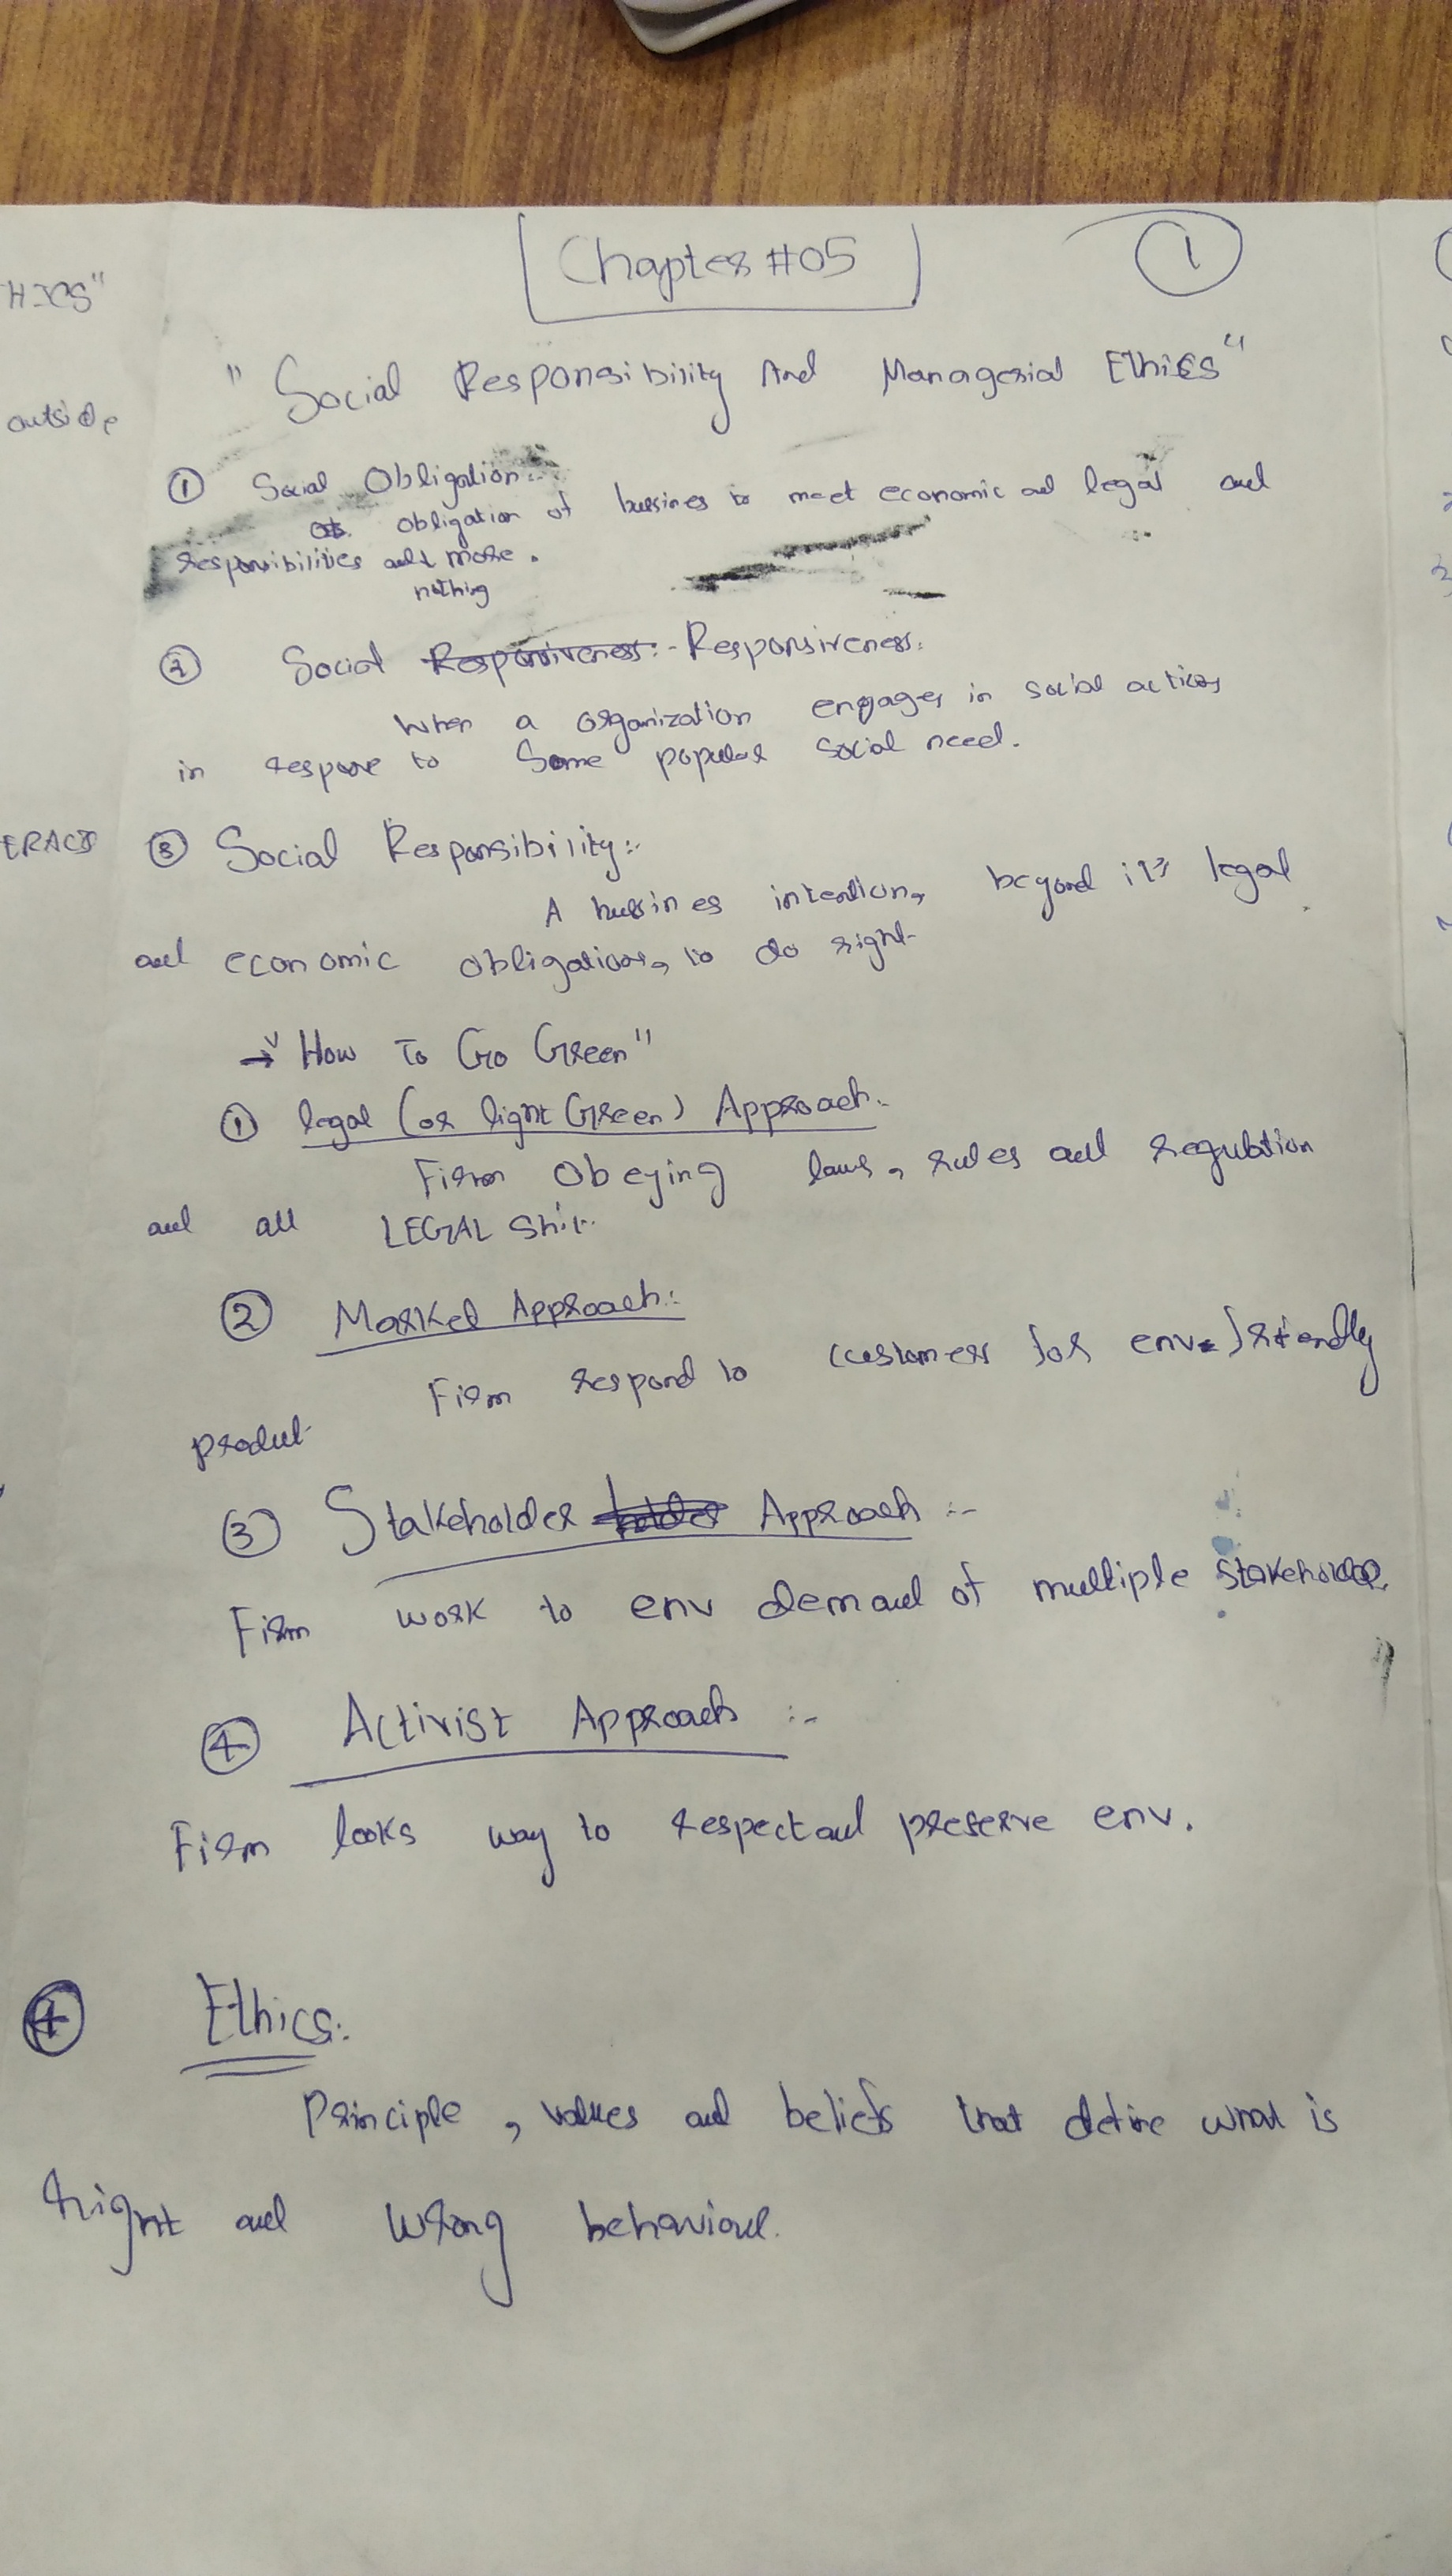 Chapter #05
1
HICS"
"Social Responsibility And Managerial Ethics"
outside
① Social Obligation:
obligation of bussines to meet economic and legal and
responsibilities and more.
nothing
② Social Responsiveness:- Responsiveness:
When a organization engages in social actions
in response to Some popular social need.
ERACT
③ Social Responsibility:-
A bussines intention, beyond its legal
and economic obligations, to do right
→ "How To Go Green"
① legal (or light Green) Approach.
Firm Obeying laws, rules and regulation
and all LEGAL Shit.
② Market Approach:
Firm respond to customers for env. friendly
produt
③ Stakeholder holder Approach :-
Firm work to env demand of multiple stakeholder
④ Activist Approach :-
Firm looks way to respect and preserve env.
④ Ethics:
Principle, values and beliefs that define what is
right and wrong behaviour.